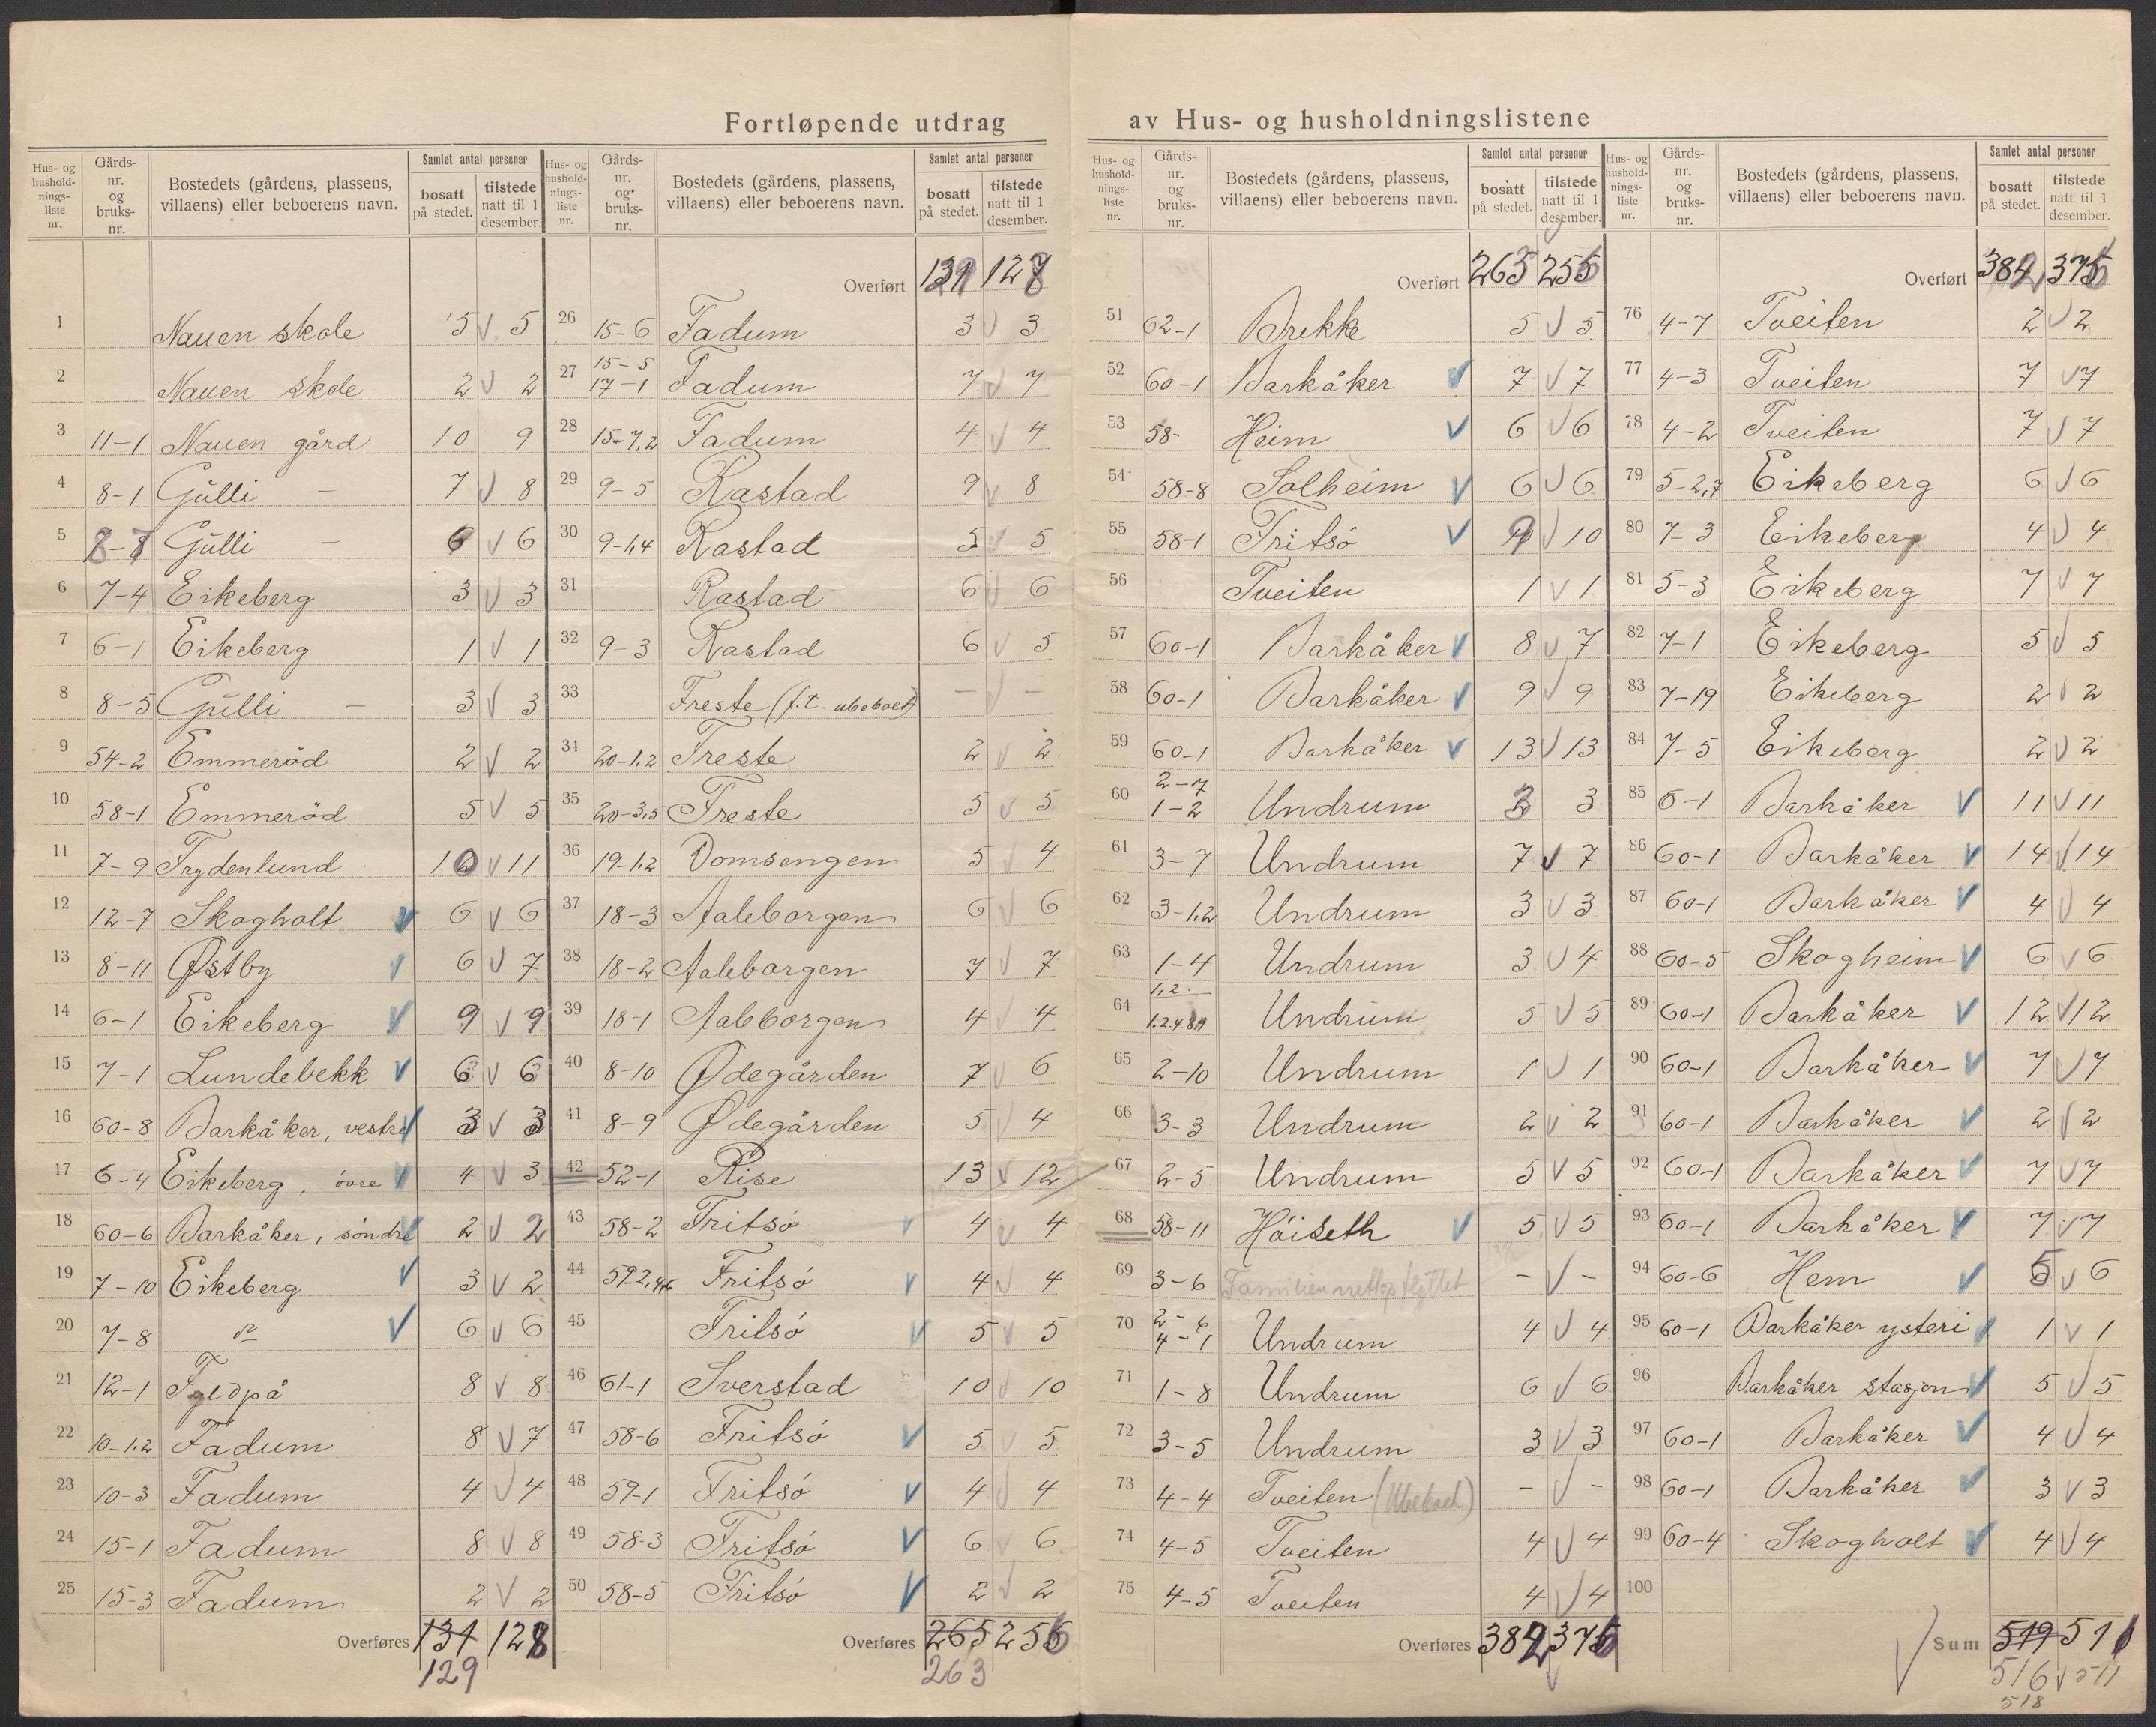 Fortløpende utdrag av Hus- og husholdningslistene
Hus- og husholdningsliste nr. | Gårds-nr. og bruks-nr. | Bostedets (gårdens, plassens, villaens) eller beboerens navn. | Samlet antal personer: bosatt på stedet. | tilstede natt til 1 desember.
1 Nauen skole 5 5
2 Nauen skole 2 2
3 11-1 Nauen gård 10 9
4 8-1 Gülli – 7 8
5 8-8 Gülli – 6 6
6 7-4 Eikeberg 3 3
7 6-1 Eikeberg 1 1
8 8-5 Gülli – 3 3
9 54-2 Emmeröd 2 2
10 58-1 Emmeröd 5 5
11 7-9 Frydenlund 10 11
12 12-7 Skogholt 6 6
13 8-11 Østby 6 7
14 6-1 Eikeberg 9 9
15 7-1 Lundebekk 6 6
16 60-8 Barkåker, vestre 3 3
17 6-4 Eikeberg, övre 4 3
18 60-6 Barkåker, söndre 2 2
19 7-10 Eikeberg 3 2
20 7-8 6 6
21 12-1 8 8
22 10-1,2 Fadum 8 7
23 10-3 Fadum 4 4
24 15-1 Fadum 8 8
25 15-3 Fadum 2 2
Overføres 131 128
129
Hus- og husholdningsliste nr. | Gårds-nr. og bruks-nr. | Bostedets (gårdens, plassens, villaens) eller beboerens navn. | Samlet antal personer: bosatt på stedet. | tilstede natt til 1 desember.
Overført 131 128
26 15-6 Fadum 3 3
27 15-5 17-1 Fadum 7 7
28 15-7,2 Fadum 4 4
29 9-5 Rastad 9 8
30 9-1,4 Rastad 5 5
31 Rastad 6 6
32 9-3 Rastad 6 5
33 Freste (f.t. ubeboet) – –
34 20-1,2 Freste 2 2
35 20-3,5 Freste 5 5
36 19-1,2 Domsengen 5 4
37 18-3 Aaleborgen 6 6
38 18-2 Aaleborgen 7 7
39 18-1 Aaleborgen 4 4
40 8-10 Ødegården 7 6
41 8-9 Ødegården 5 4
42 52-1 Rise 13 12
43 58-2 Fritsö 4 4
44 Fritsö 4 4
45 Fritsö 5 5
46 61-1 Sverstad 10 10
47 58-6 Fritsö 5 5
48 59-1 Fritsö 4 4
49 58-3 Fritsö 6 6
50 58-5 Fritsö 2 2
Overføres 265 256
263
Hus- og husholdningsliste nr. | Gårds-nr. og bruks-nr. | Bostedets (gårdens, plassens, villaens) eller beboerens navn. | Samlet antal personer: bosatt på stedet. | tilstede natt til 1 desember.
Overført 263 256
51 62-1 Brekke 5 5
52 60-1 Barkåker 7 7
53 58- Heim 6 6
54 58-8 Solheim 6 6
55 58-1 Fritsö 9 10
56 Tveiten 1 1
57 60-1 Barkåker 8 7
58 60-1 Barkåker 9 9
59 60-1 Barkåker 13 13
60 2-7 1-2 Undrum 3 3
61 3-7 Undrum 7 7
62 3-1,2 Undrum 3 3
63 1-4 Undrum 3 4
64 Undrum 5 5
65 2-10 Undrum 1 1
66 3-3 Undrum 2 2
67 2-5 Undrum 5 5
68 58-11 Höiseth 5 5
69 3-6 Familien nettop flyttet – –
70 2-6 4-1 Undrum 4 4
71 1-8 Undrum 6 6
72 3-5 Undrum 3 3
73 4-4 Tveiten (Ubeboet) – –
74 4-5 Tveiten 4 4
75 4-5 Tveiten 4 4
Overføres 382 376
Hus- og husholdningsliste nr. | Gårds-nr. og bruks-nr. | Bostedets (gårdens, plassens, villaens) eller beboerens navn. | Samlet antal personer: bosatt på stedet. | tilstede natt til 1 desember.
Overført 382 376
76 4-7 Tveiten 2 2
77 4-3 Tveiten 7 7
78 4-2 Tveiten 7 7
79 5-2,7 Eikeberg 6 6
80 7-3 Eikeberg 4 4
81 5-3 Eikeberg 7 7
82 7-1 Eikeberg 5 5
83 7-19 Eikeberg 2 2
84 7-5 Eikeberg 2 2
85 6-1 Barkåker 11 11
86 60-1 Barkåker 14 14
87 60-1 Barkåker 4 4
88 60-5 Skogheim 6 6
89 60-1 Barkåker 12 12
90 60-1 Barkåker 7 7
91 60-1 Barkåker 2 2
92 60-1 Barkåker 7 7
93 60-1 Barkåker 7 7
94 60-6 Hem 5 6
95 60-1 Barkåker ysteri 1 1
96 Barkåker stasjon 5 5
97 60-1 Barkåker 4 4
98 60-1 Barkåker 3 3
99 60-4 Skogholt 4 4
100
Sum 519 511
516 511
518